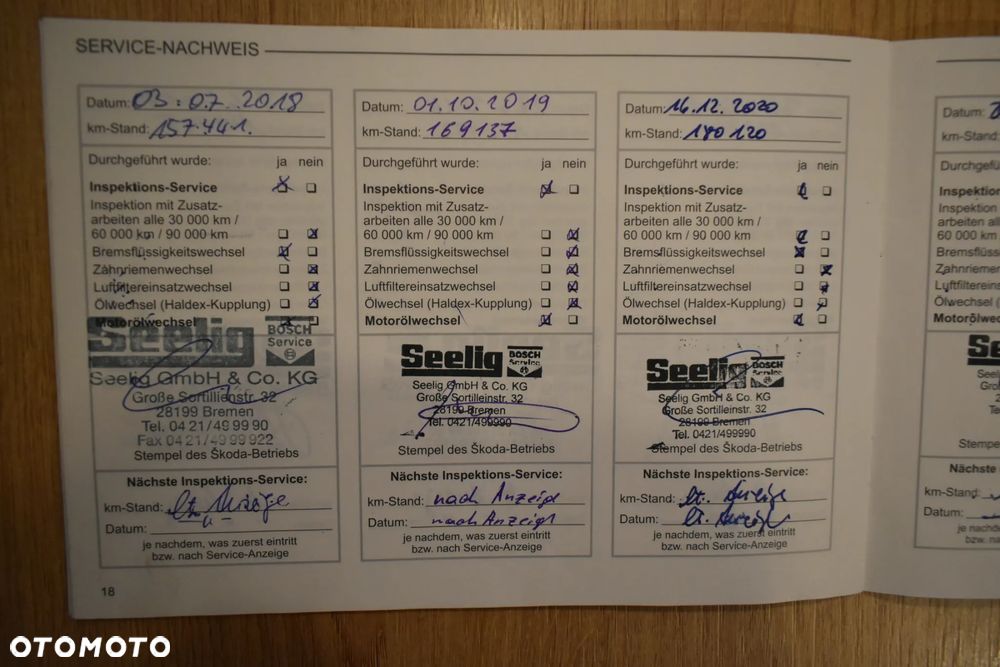 SERVICE-NACHWEIS
Datum: 03.07.2018
km-Stand: 157.441.
Durchgeführt wurde: ja nein
Inspektions-Service
Inspektion mit Zusatz-
arbeiten alle 30 000 km /
60 000 km / 90 000 km
Bremsflüssigkeitswechsel
Zahnriemenwechsel
Luftfiltereinsatzwechsel
Ölwechsel (Haldex-Kupplung)
Motorölwechsel
Seelig BOSCH
Service
Seelig GmbH & Co. KG
Große Sortillienstr. 32
28199 Bremen
Tel. 0421/49 99 90
Fax 0421/49 99 922
Stempel des Škoda-Betriebs
Nächste Inspektions-Service:
km-Stand:
Datum:
je nachdem, was zuerst eintritt
bzw. nach Service-Anzeige
Datum: 01.10.2019
km-Stand: 169137
Durchgeführt wurde: ja nein
Inspektions-Service
Inspektion mit Zusatz-
arbeiten alle 30 000 km /
60 000 km / 90 000 km
Bremsflüssigkeitswechsel
Zahnriemenwechsel
Luftfiltereinsatzwechsel
Ölwechsel (Haldex-Kupplung)
Motorölwechsel
Seelig BOSCH
Service
Seelig GmbH & Co. KG
Große Sortilleinstr. 32
28199 Bremen
Tel. 0421/499990
Stempel des Škoda-Betriebs
Nächste Inspektions-Service:
km-Stand: nach Anzeige
Datum: nach Anzeige
je nachdem, was zuerst eintritt
bzw. nach Service-Anzeige
Datum: 16.12.2020
km-Stand: 180120
Durchgeführt wurde: ja nein
Inspektions-Service
Inspektion mit Zusatz-
arbeiten alle 30 000 km /
60 000 km / 90 000 km
Bremsflüssigkeitswechsel
Zahnriemenwechsel
Luftfiltereinsatzwechsel
Ölwechsel (Haldex-Kupplung)
Motorölwechsel
Seelig BOSCH
Service
Seelig GmbH & Co. KG
Große Sortilleinstr. 32
28199 Bremen
Tel. 0421/499990
Stempel des Škoda-Betriebs
Nächste Inspektions-Service:
km-Stand: lt. Anzeige
Datum: lt. Anzeige
je nachdem, was zuerst eintritt
bzw. nach Service-Anzeige
18
Datum:
km-Stand:
Durchgefü
Inspektion
Inspektion
arbeiten al
60 000 km
Bremsflüss
Zahnriemen
Luftfilterein
Ölwechsel (
Motorölwec
See
Stempe
Nächste
km-Stand:
Datum:
je nach
bzw. n
OTOMOTO